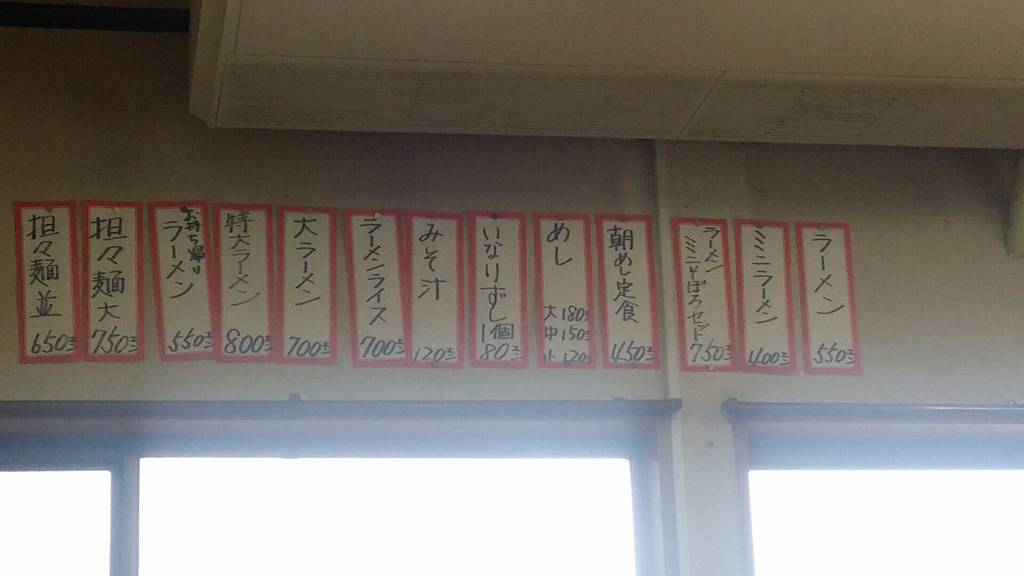 ラーメン
550円
ミニラーメン
400円
ラーメン
ミニそぼろセット
750円
朝めし定食
450円
めし
大 180円
中 150円
小 120円
いなりずし
1個
80円
みそ汁
120円
ラーメンライス
700円
大ラーメン
700円
特大ラーメン
800円
お持ち帰り
ラーメン
550円
担々麺大
750円
担々麺並
650円